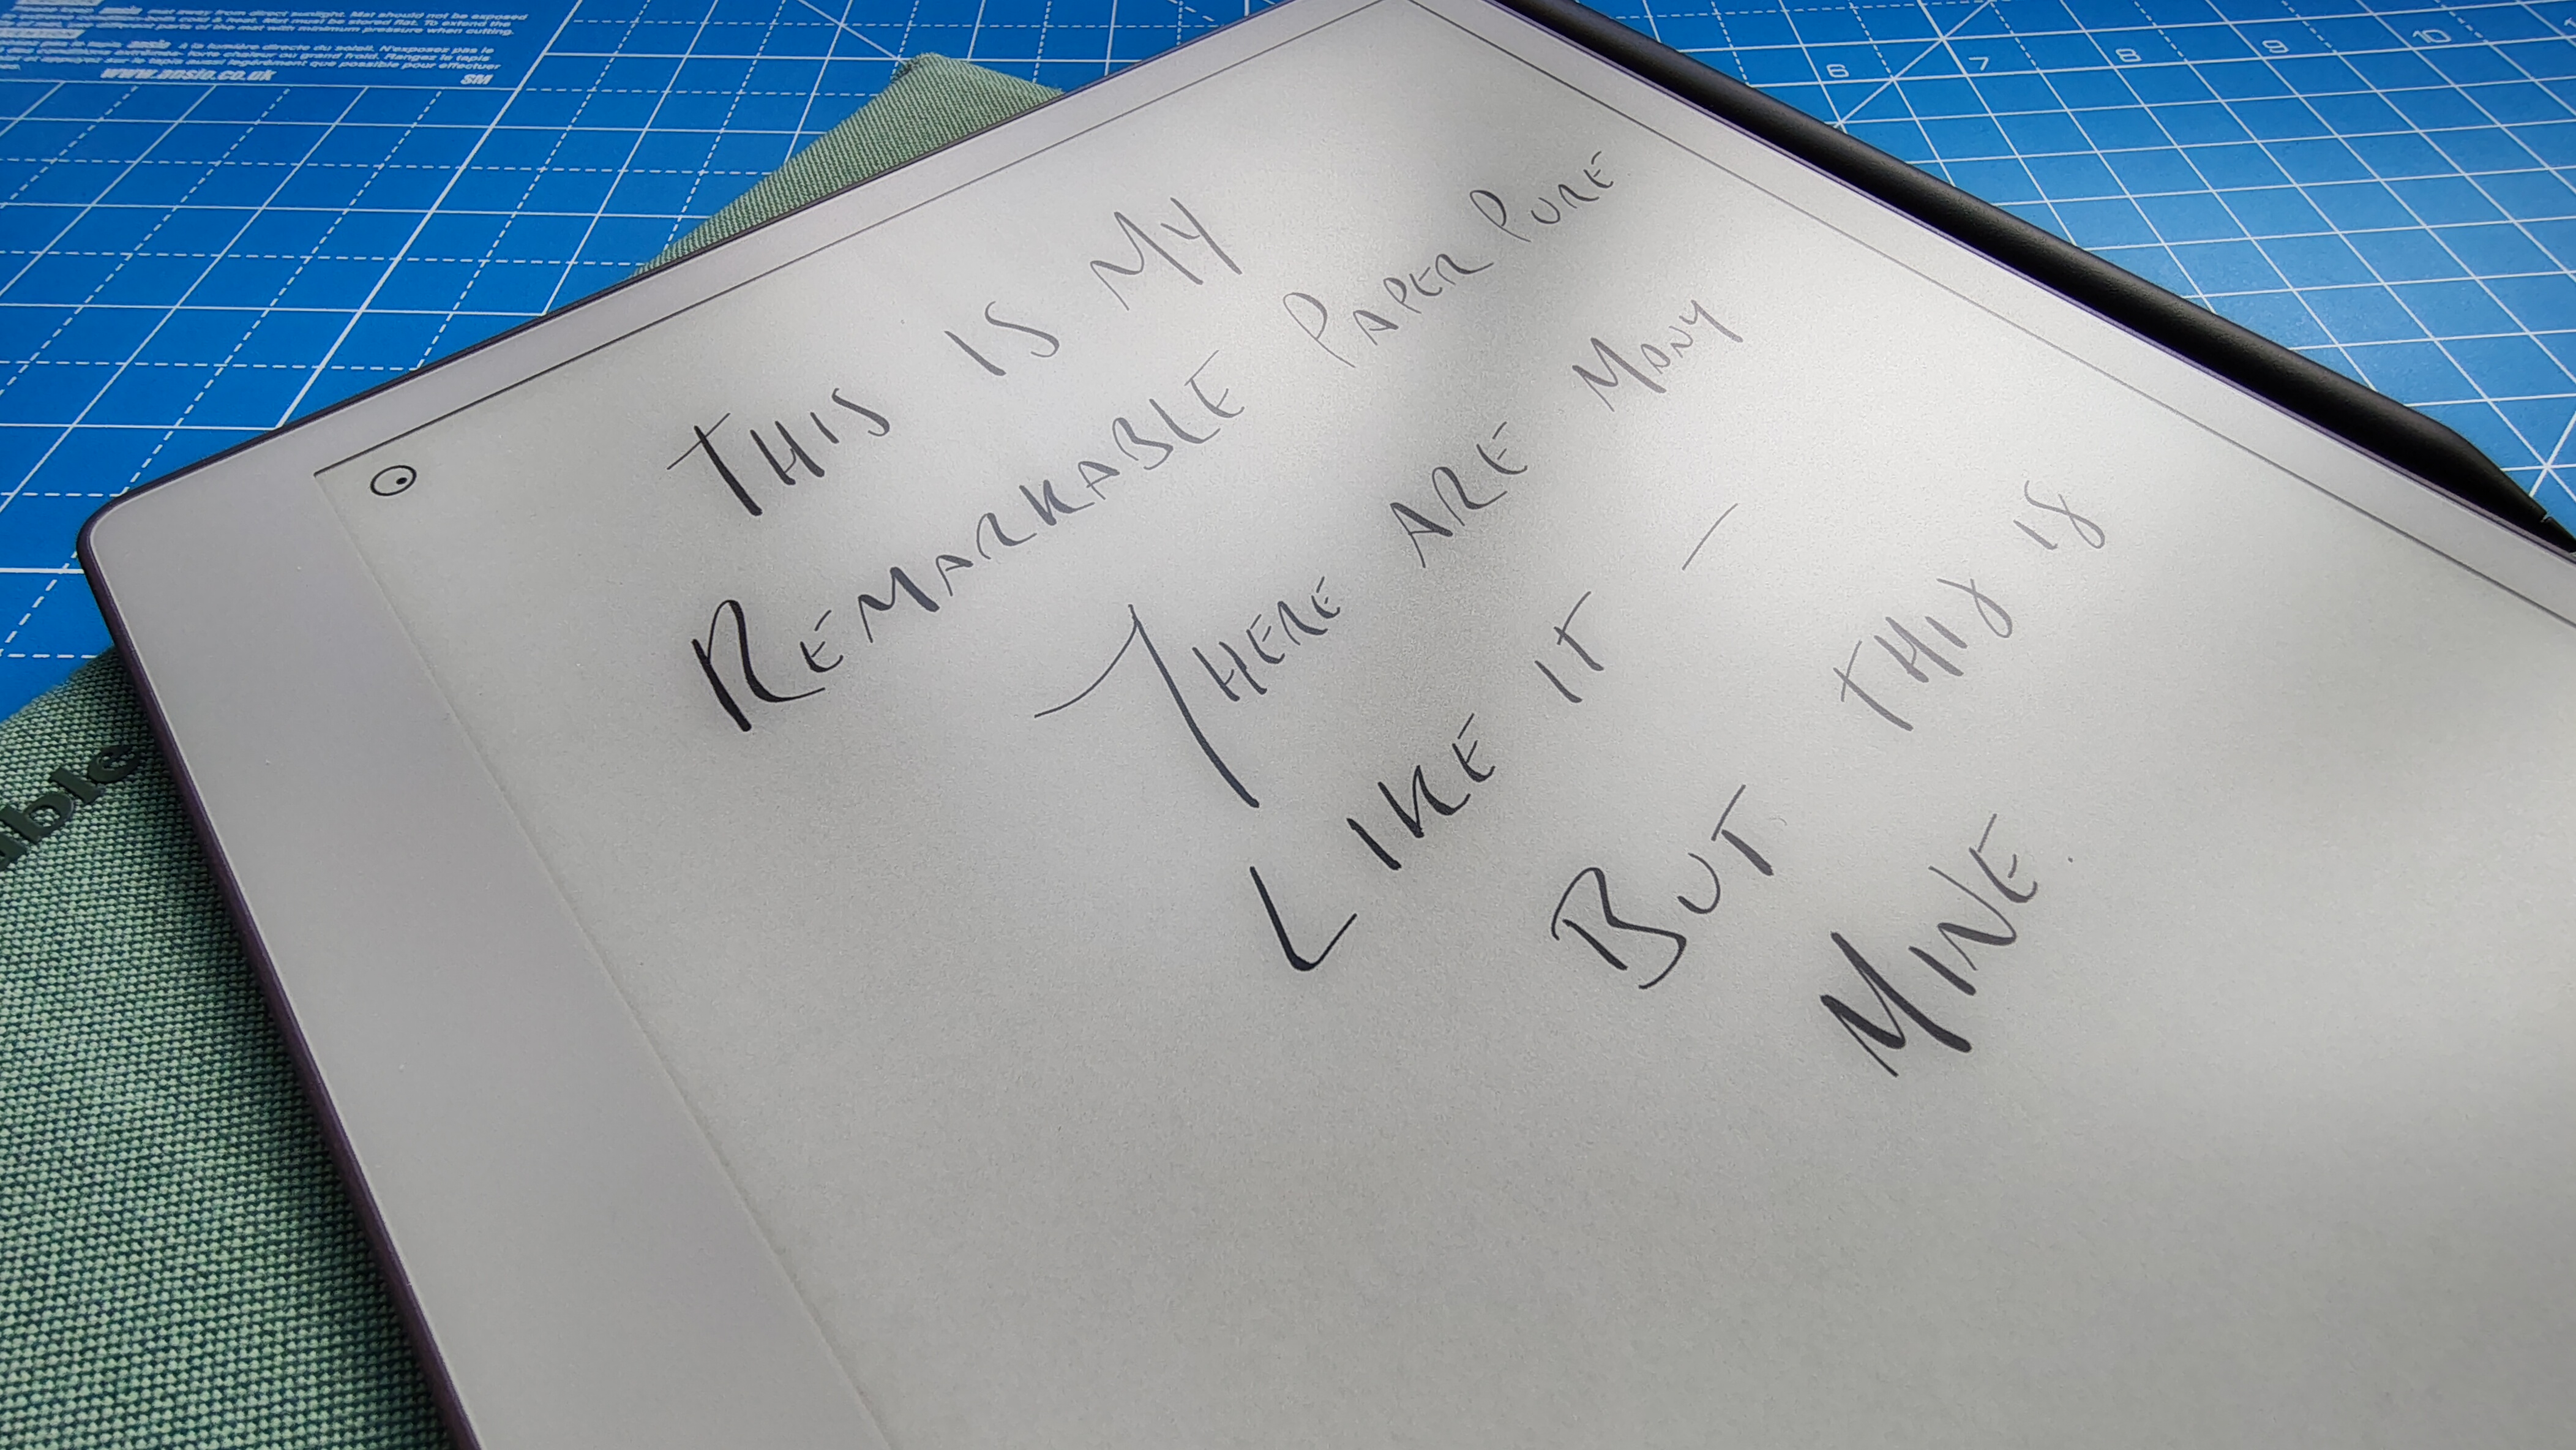 away from direct sunlight. Mat should not be exposed
cold & heat. Mat must be stored flat. To extend the
parts of the mat with minimum pressure when cutting.
ansio à la lumière directe du soleil. N'exposez pas le
forte chaleur ou grand froid. Rangez le tapis
et appuyez sur le tapis aussi légèrement que possible pour effectuer
www.ansio.co.uk SM
6 7 8 9 10
THIS IS MY
REMARKABLE PAPER PURE
THERE ARE MANY
LIKE IT –
BUT THIS IS
MINE.
able